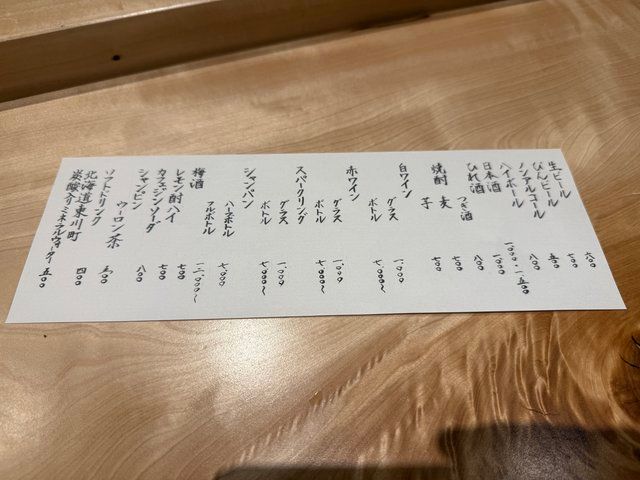 生ビール 六〇〇
びんビール 七〇〇
ノンアルコール 五〇〇
ハイボール 八〇〇
日本酒 一、〇〇〇・一、五〇〇
ひれ酒 一、〇〇〇
つぎ酒 八〇〇
焼酎 麦 七〇〇
芋 七〇〇
白ワイン グラス 一、〇〇〇
ボトル 七、〇〇〇〜
赤ワイン グラス 一、〇〇〇
ボトル 七、〇〇〇〜
スパークリング グラス 一、〇〇〇
ボトル 七、〇〇〇〜
シャンパン ハーフボトル 七、〇〇〇
フルボトル 一二、〇〇〇〜
梅酒 七〇〇
レモン酎ハイ 七〇〇
カフェジンソーダ 八〇〇
シャンピン
ウーロン茶 五〇〇
ソフトドリンク 四〇〇
北海道東川町
炭酸入ミネラルウォーター 五〇〇